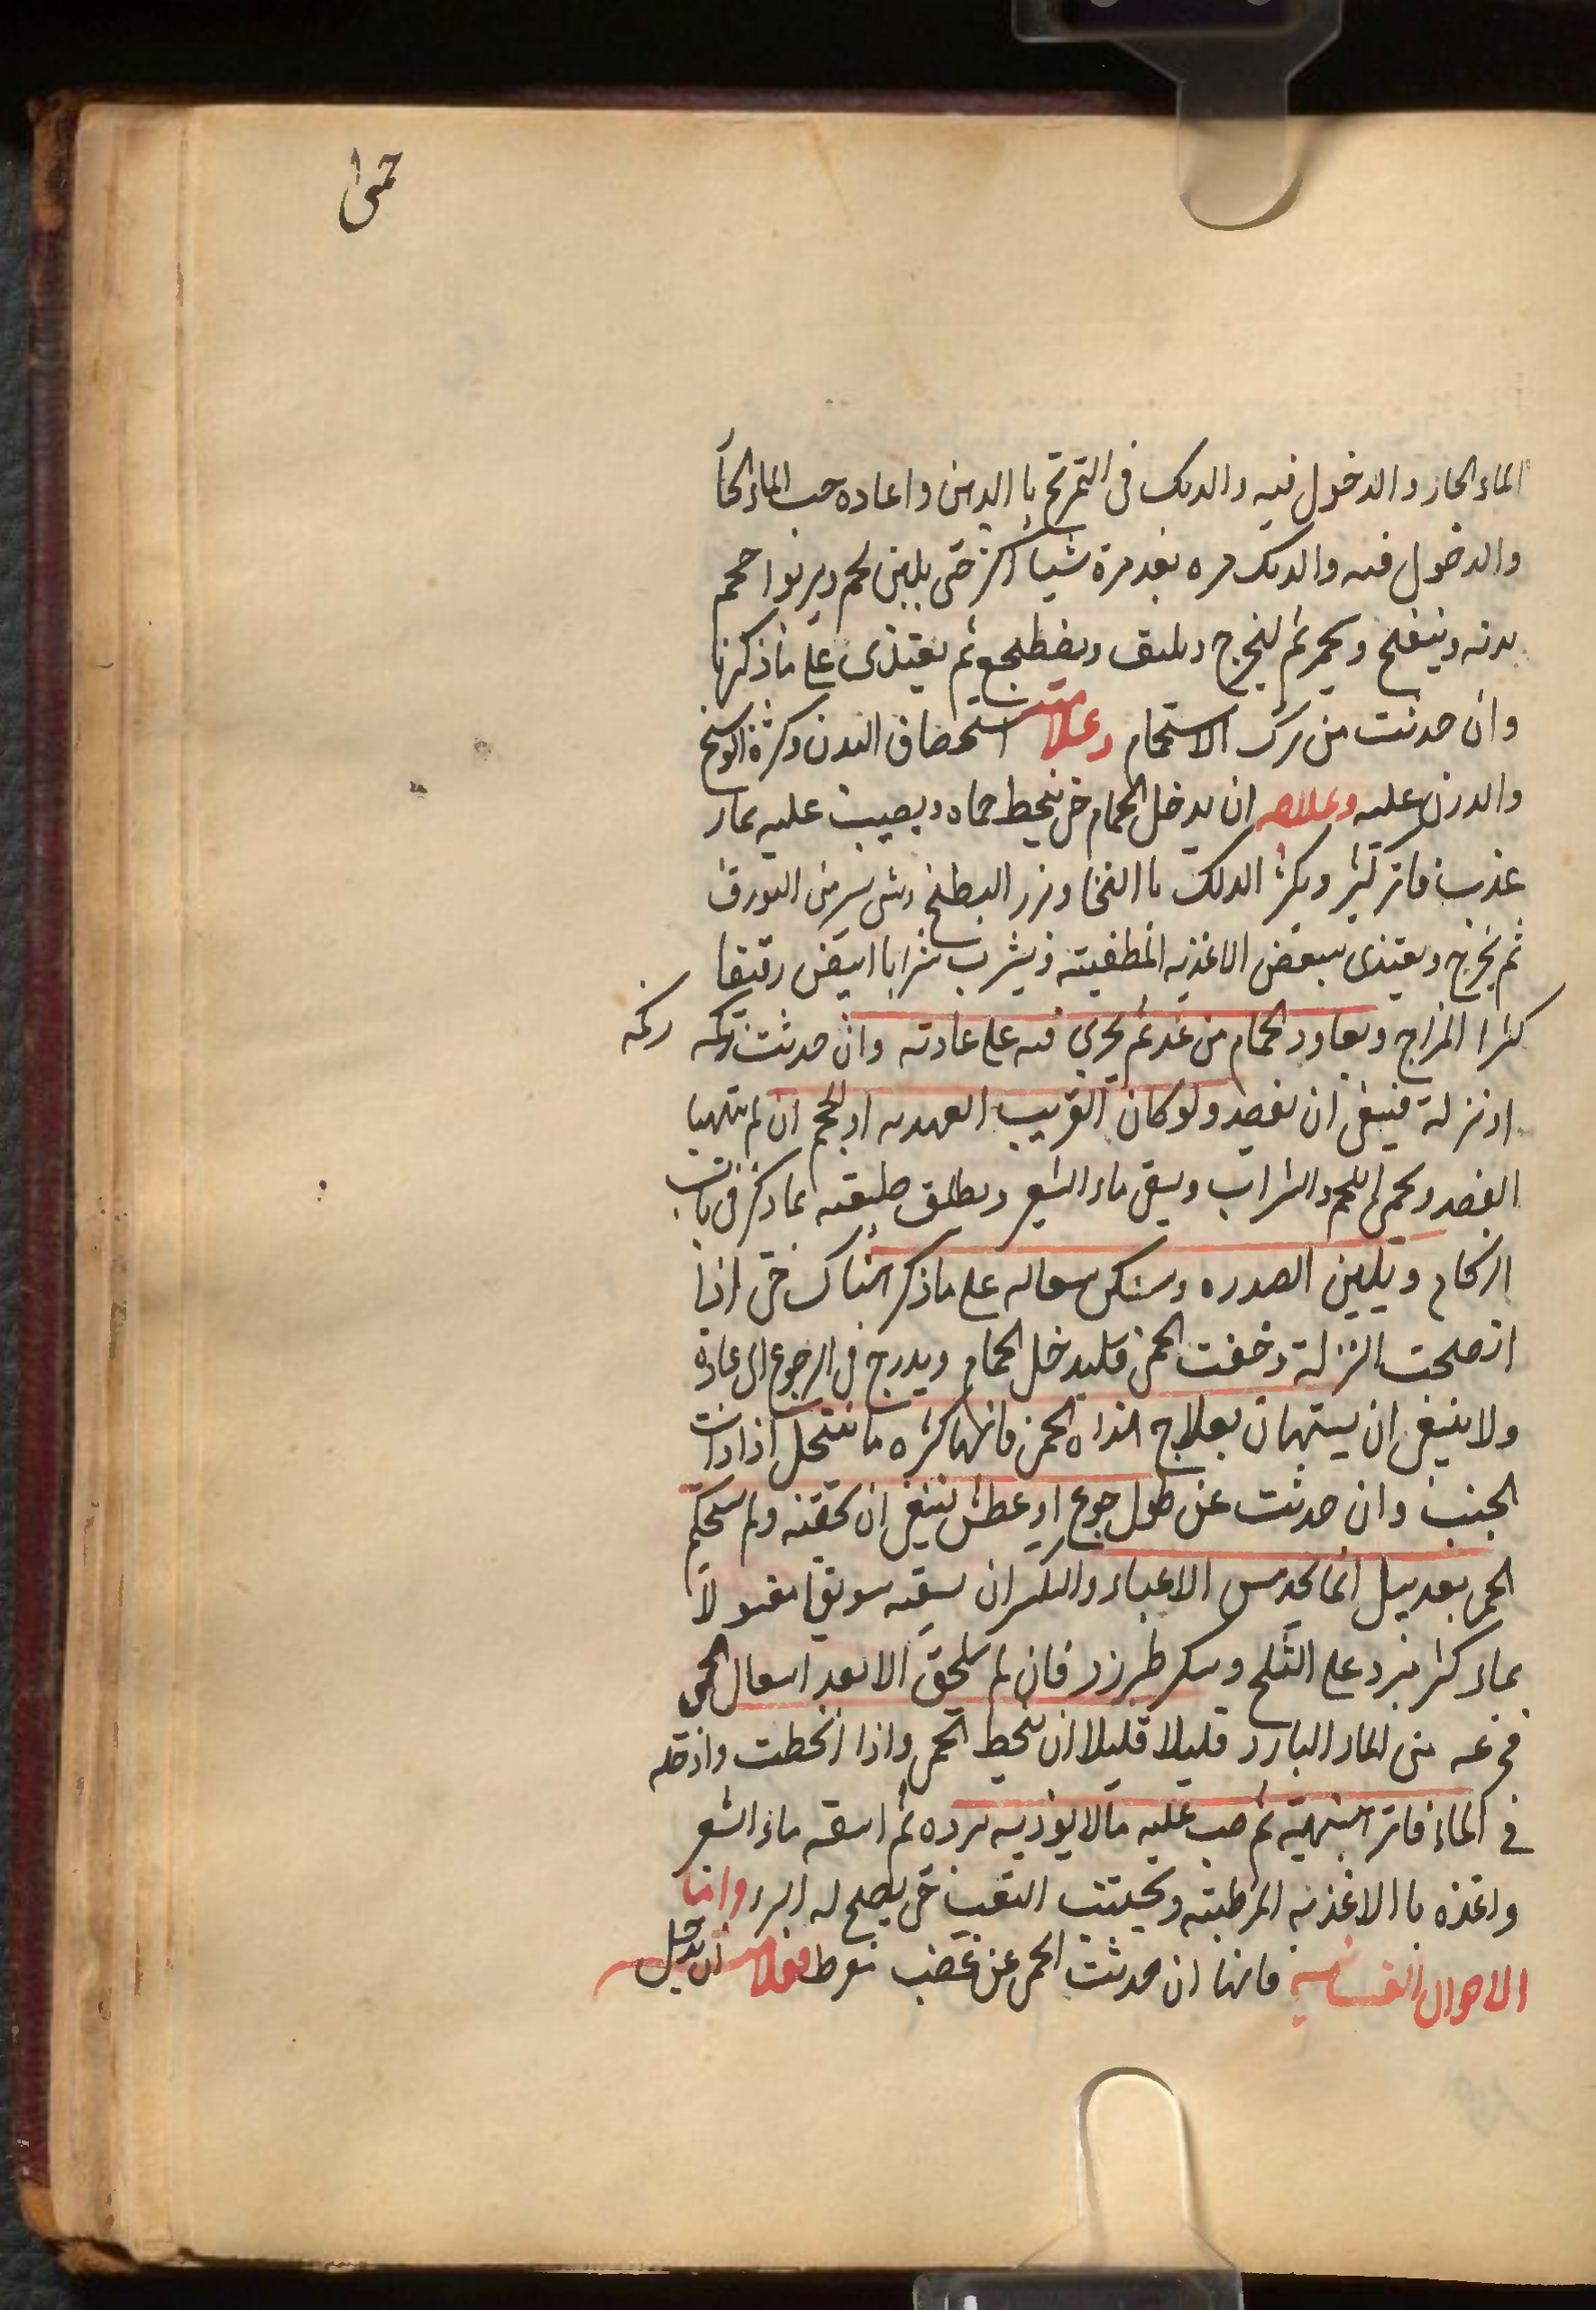 حمى
الماء الحار والدخول فيه والدلك فى التمرّخ با الدهن واعاده صب الماء الحا
والدخول فيه والدلك مره بعد مرة شيأ اكثر حتى يلين لحم ويربوا حجم
بدنه وينتفخ ويحمر ثم ليخرج ويضطجع ثم يغتذى على ما ذكرنا
وان حدثت من ترك الاستحمام وعلامته استحصاف البدن وكثرة الوسخ
والدرن عليه وعلاجه ان يدخل الحمام حتى ينحط حماه ويصيب عليه بماء
عذب فاتر كثير ويكثر الدلك با النخا وبزر البطيخ وشى يسير من البورق
ثم يخرج ويغتذى ببعض الاغذيه المطفيته ويشرب شرابا ابيض رقيقا
كثرا المزاج ويعاود الحمام من غد ثم يجرى فيه على عادته وان حدثت زكمه زكمه
او نزلة فينبغى ان يفصد ولو كان القريب العهد به او يحجم ان لم يتهيا
الفصد ويحمى اللحم والشراب ويسقى ماء الشعير ويطلق طبيعته بما ذكر فى باب
الزكام ويلين الصدره وسكن سعاله على ما ذكر هناك حتى اذا
انصلحت النزلة وخفت الحمى فليدخل الحمام ويدرج فى الرجوع الى عادة
ولا ينبغى ان يستهان بعلاج هذاه الحمى فانها كثره ما تنتحل اذا
الجنب وان حدثت عن طول جوع او عطش ينبغى ان تحقنه ولم تستحكم
الحمى بعد بيل الاعياء والتكسر ان يسقيه سويقا مغسولا
بماء كثر مبرد على الثلج وسكر طبرزد فان لم يلحق الا بعد اشعال الحمى
فجرعه من الماء البارد قليلا قليلا ان تنحط الحمى واذا انحطت وادخله
فى الماء فاتر ثم صب عليه مالا يوذيه برده ثم اسقه ماء الشعير
واغذه با الاغذيه المرطبته ويجتنب التعب حتى يصلح له البرء واما
الاحوال النفسانيه فانها ان حدثت الحمى عن غضب مفرط فعلامته ان يدخل